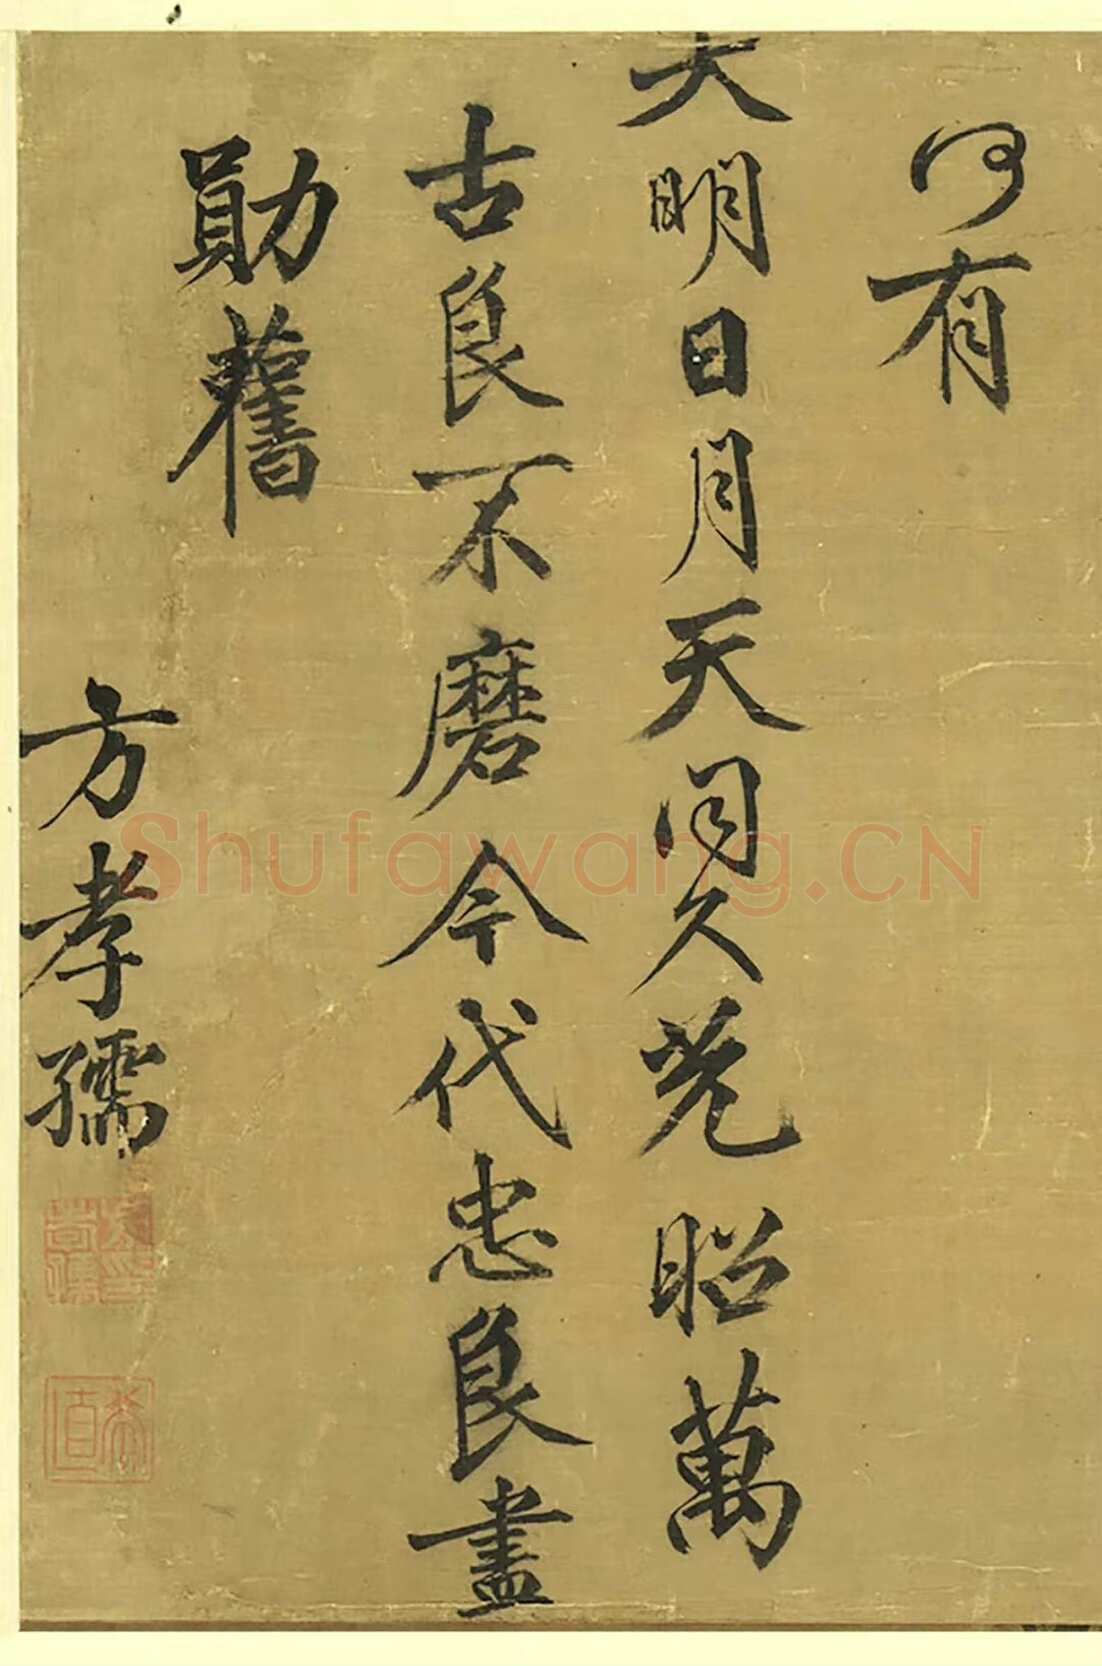 何有
大明日月天同久光昭萬
古良不磨今代忠良盡
勛舊
方孝孺
Shufawang.CN